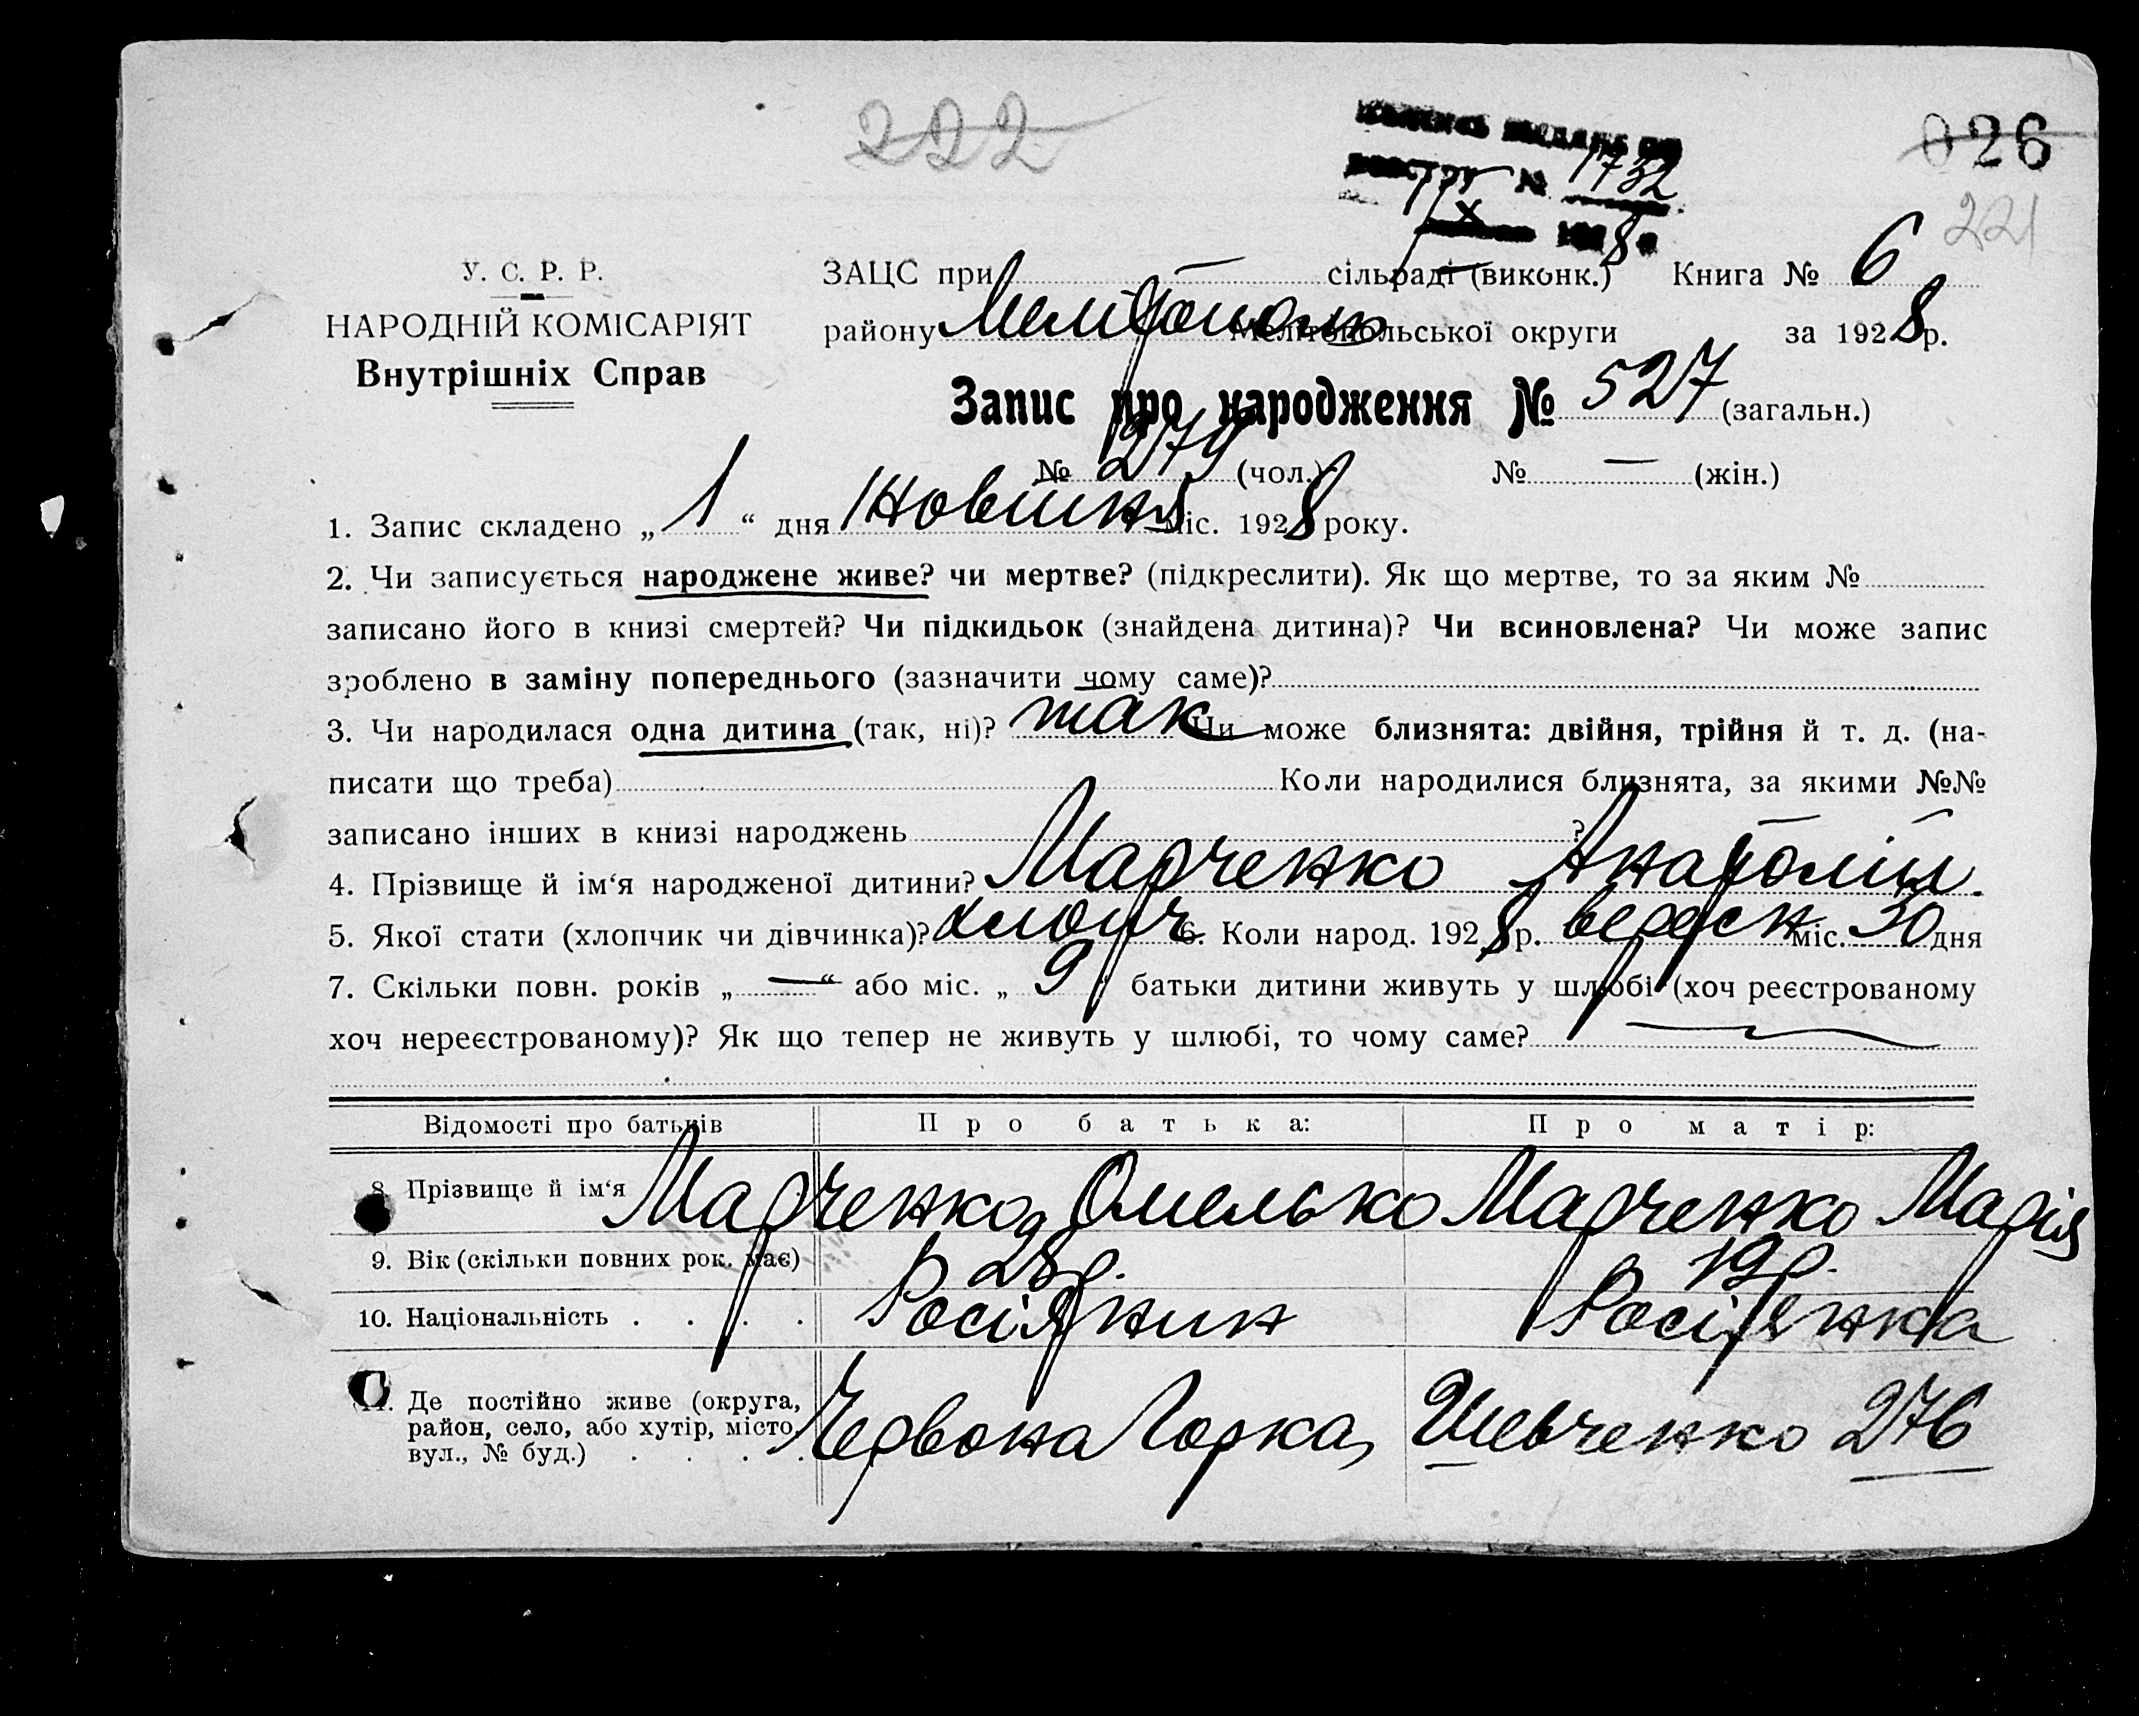 222
026
221
№ 1732
У. С. Р. Р.
НАРОДНІЙ КОМІСАРІЯТ
Внутрішніх Справ
ЗАЦС при — сільраді (виконк.) Книга № 6
району Мелітополь Мелітопольської округи за 1928 р.
Запис про народження № 527 (загальн.)
№ 279 (чол.) № — (жін.)
1. Запис складено „ 1 “ дня Жовтня міс. 1928 року.
2. Чи записується народжене живе? чи мертве? (підкреслити). Як що мертве, то за яким №
записано його в книзі смертей? Чи підкидьок (знайдена дитина)? Чи всиновлена? Чи може запис
зроблено в заміну попереднього (зазначити чому саме)?
3. Чи народилася одна дитина (так, ні)? так Чи може близнята: двійня, трійня й т. д. (на-
писати що треба) Коли народилися близнята, за якими №№
записано інших в книзі народжень ?
4. Прізвище й ім‘я народженої дитини? Марченко Анатолій.
5. Якої стати (хлопчик чи дівчинка)? хлопч 6. Коли народ. 1928 р. вересн міс. 30 дня
7. Скільки повн. років „ — “ або міс. „ 9 “ батьки дитини живуть у шлюбі (хоч реєстрованому
хоч нереєстрованому)? Як що тепер не живуть у шлюбі, то чому саме?
Відомості про батьків Про батька: Про матір:
8. Прізвище й ім‘я Марченко Омелько Марченко Марія
9. Вік (скільки повних рок. має) 28 р. 19 р.
10. Національність . . . . Росіянин Росіянка
11. Де постійно живе (округа,
район, село, або хутір, місто,
вул., № буд.) . . . . Червона Горка, Шевченко 276